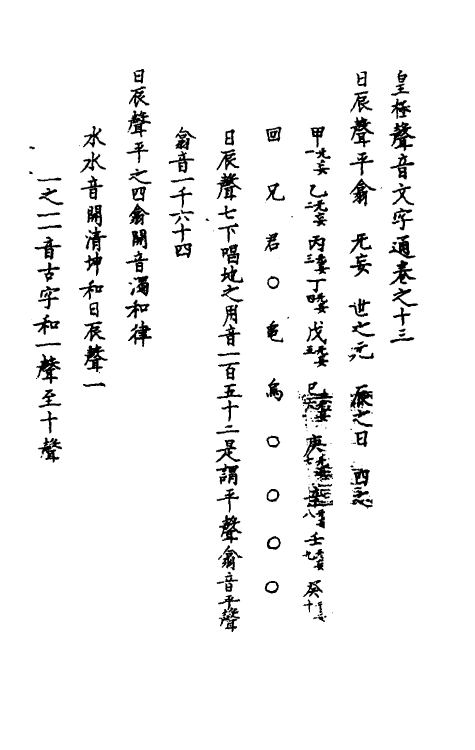 皇極聲音文字通卷之十三
日辰聲平翕　无妄　世之元　之日
甲一无妄　乙二无妄　丙三无妄　丁四无妄　戊五无妄　己六　庚七　辛八　壬九无妄　癸十无妄
回　兄　君　〇　龜　烏　〇　〇　〇　〇
日辰聲七下唱地之用音一百五十二是謂平聲翕音平聲
翕音一千六十四
日辰聲平之四翕開音濁和律
水水音開清坤和日辰聲一
一之一一音古字和一聲至十聲